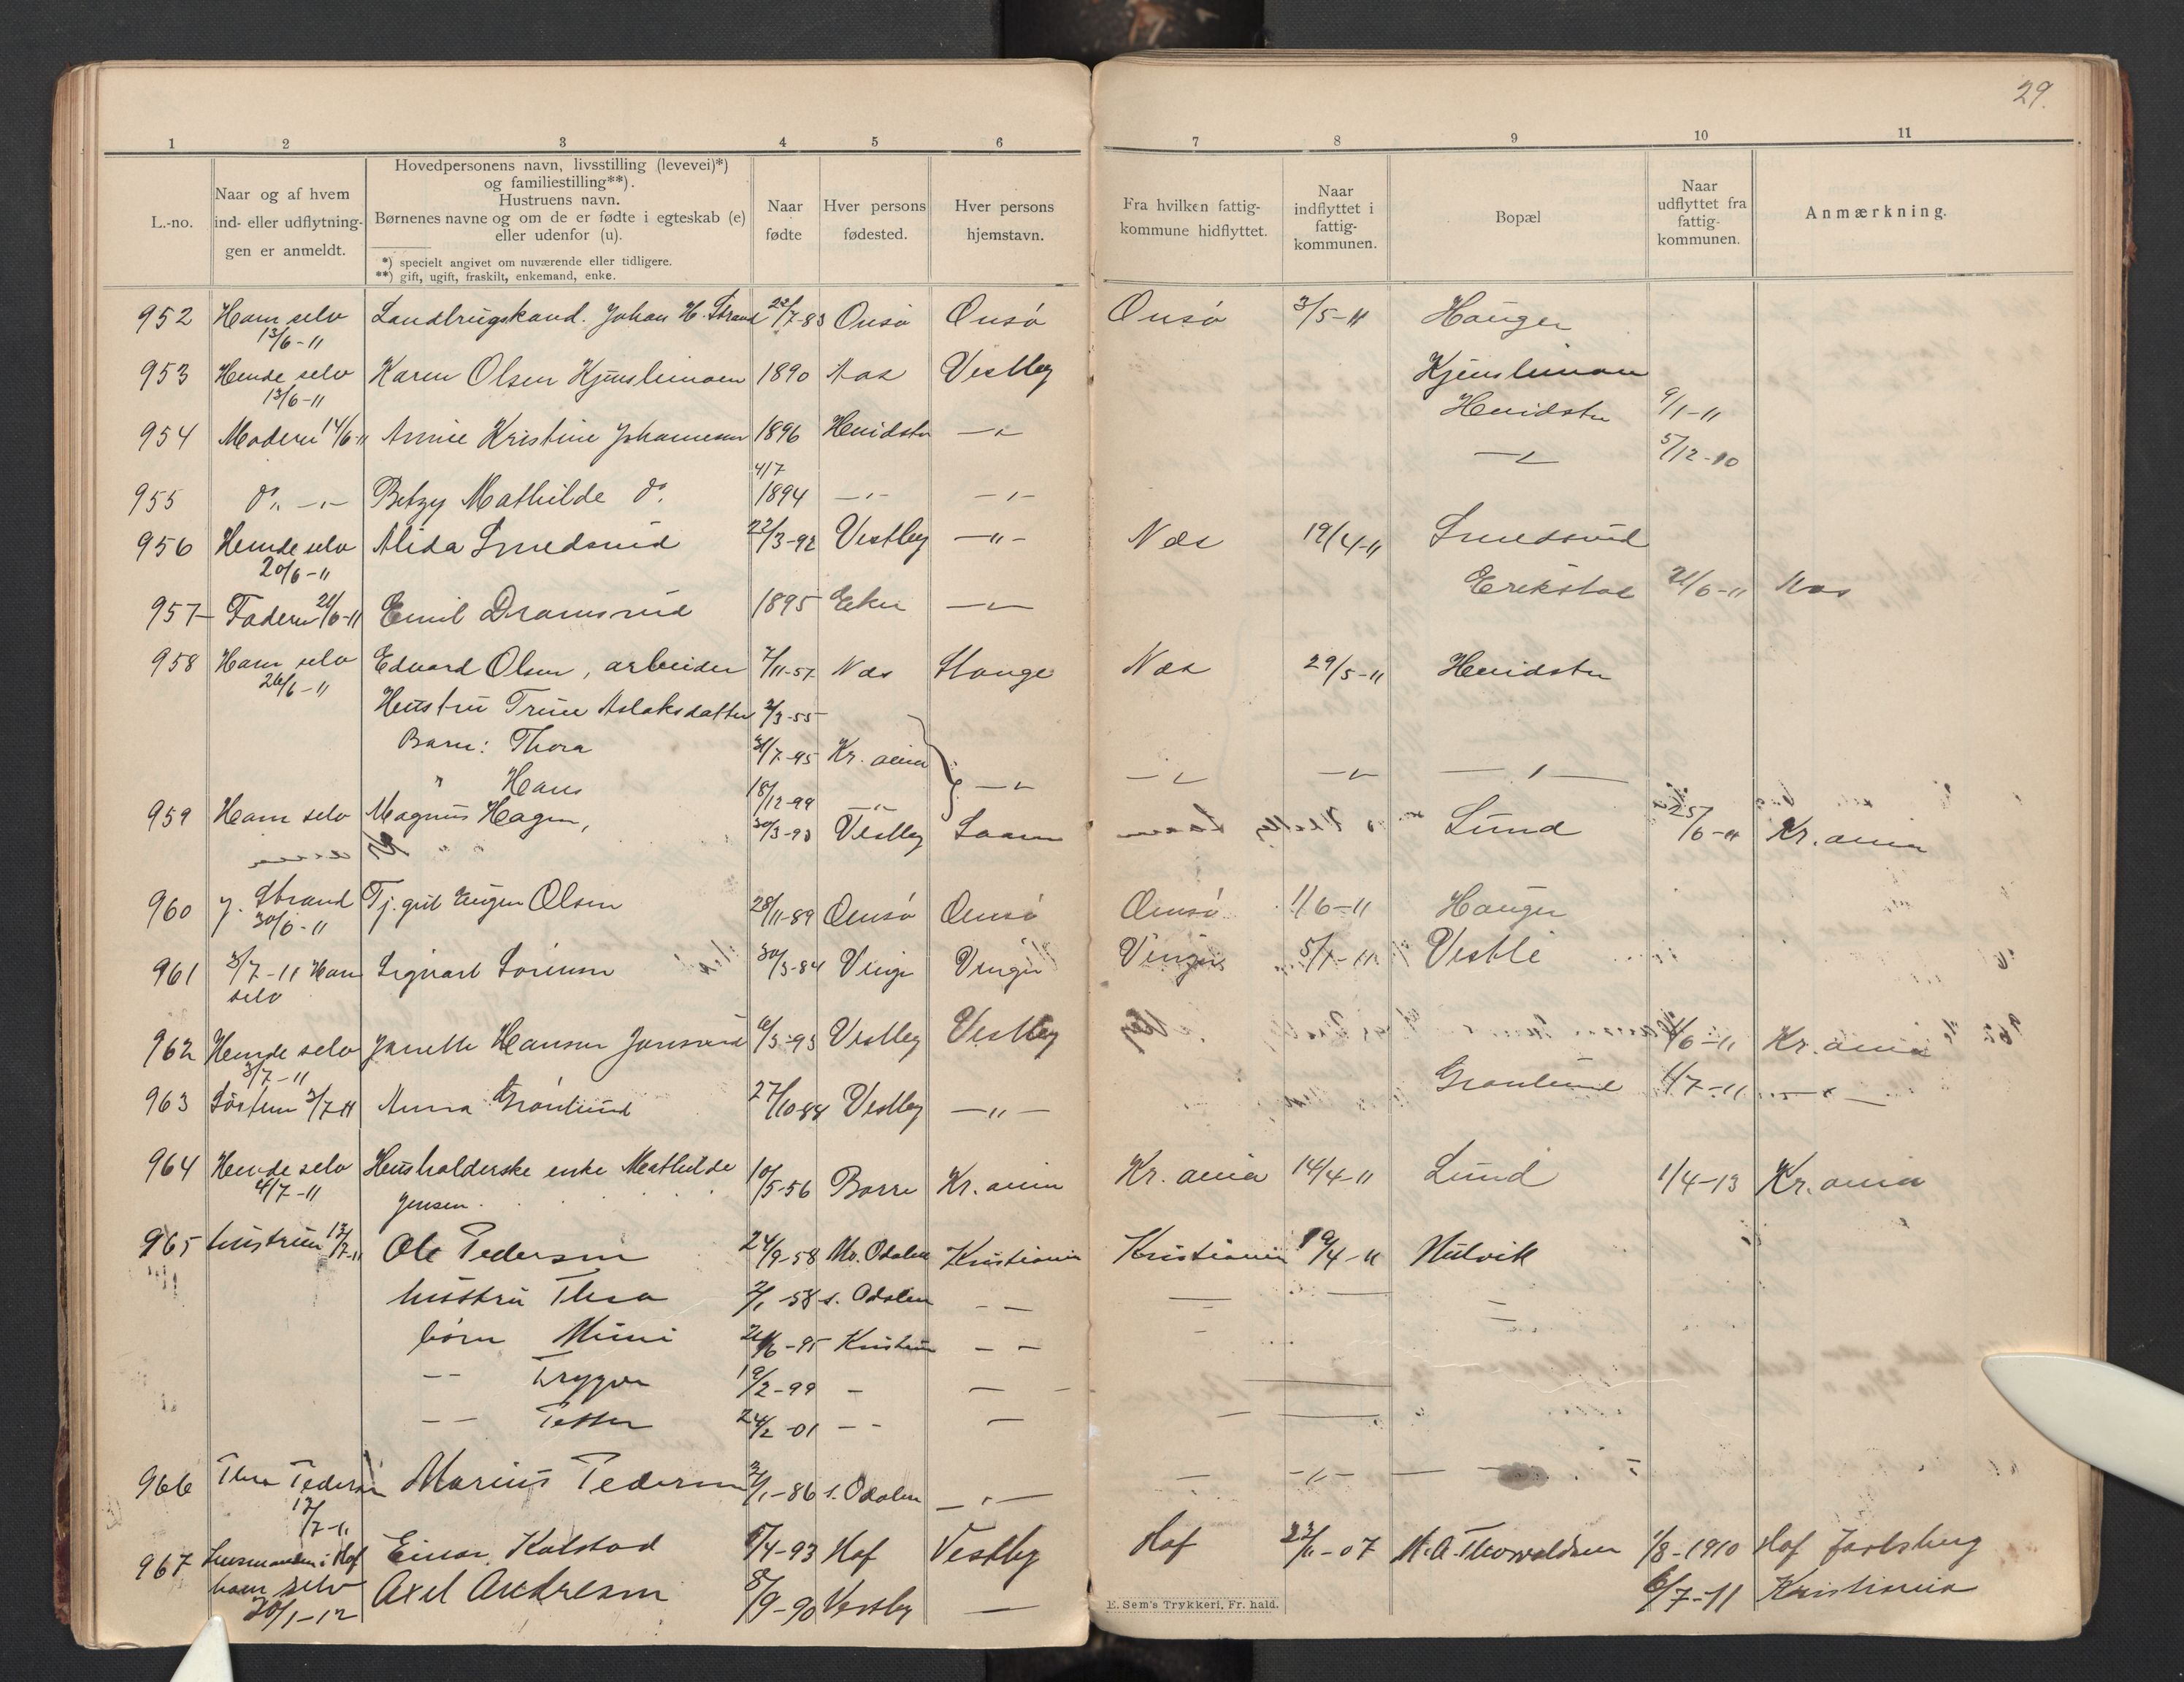 29.
1 2 3 4 5 6 7 8 9 10 11
L.-no.
Naar og af hvem
ind- eller udflytnin-
gen er anmeldt.
Hovedpersonens navn, livsstilling (levevei)*)
og familiestilling**).
Hustruens navn.
Børnenes navne og om de er fødte i egteskab (e)
eller udenfor (u).
*) specielt angivet om nuværende eller tidligere.
**) gift, ugift, fraskilt, enkemand, enke.
Naar
fødte
Hver persons
fødested.
Hver persons
hjemstavn.
Fra hvilken fattig-
kommune hidflyttet.
Naar
indflyttet i
fattig-
kommunen.
Bopæl
Naar
udflyttet fra
fattig-
kommunen.
Anmærkning.
952 Ham selv Landbrugskand. Johan H. Strand 22/7-83 Onsø Onsø Onsø 3/5-11 Hauger
13/6-11
953 Hende selv Karen Olsen 1890 Aas Vestby
13/6-11
Henidster 9/1-11
954 Moderen 14/6-11 Annie Kristine Johannesen 1896 Henidster -"-
-"- 5/12-10
4/7
955 do. -"- Betzy Mathilde do. 1894 -"- -"-
956 Hende selv Alida Smedsrud 22/3-92 Vestby -"- Næs 19/4-11 Smedsrud
20/6-11
Erikstad 21/6-11 Aas
957 Faderen 21/6-11 Emil Dramsrud 1895 Eker -"-
958 Ham selv Edvard Olsen, arbeider 7/11-57 Næs Stange Næs 29/5-11 Henidster
26/6-11
Hustru Trine Aslaksdatter 2/3-55
Barn: Thora 31/7-95 Kr.ania
" Hans 18/12-99 -"- -"- -"- -"- -"-
959 Ham selv Magnus Hagen, 30/3-93 Vestby Saaner Lund 25/6-11 Kr.ania
960 J. Strand Tj.gut Eugen Olsen 28/11-89 Onsø Onsø Onsø 1/6-11 Hauger
30/6-11
961 3/7-11 Ham Sigvart Sørensen 30/3-84 Vinger Vinger Vinger 5/1-11 Vestli
selv
962 Hende selv Janette Hansen Jonsrud 6/3-93 Vestby Vestby /6-11 Kr.ania
3/7-11
Grønlund 1/7-11 -"-
963 Søsteren 3/7-11 Anna Grønlund 27/10-88 Vestby -"-
964 Hende selv Husholderske enke Mathilde 10/5-56 Borre Kr.ania Kr.ania 14/4-11 Lund 1/4-13 Kr.ania
4/7-11 Jensen.
965 hustruen 12/7-11 Ole Pedersen 24/9-58 No. Odalen Kristiania Kristiania 19/4-11 Hulvik
hustru Thea 2/1-58 s. Odalen - -
børn Mimi 26/6-95 Kristiania - -
-- Trygve 19/2-99 - -
-- Petter 24/2-01 - - -
966 Thea Pedersen Marius Pedersen 2/1-86 s. Odalen -"- - -"- -
12/7-11
967 Lensmanden i Hof Einar Kolstad 5/4-93 Hof Vestby Hof 23/11-07 H.A. Thorvaldsen 1/8-1910 Hof Jarlsberg
ham selv Axel Andresen 8/9-90 Vestby - 6/7-11 Kristiania
20/1-12
E. Sem's Trykkeri, Fr. hald.